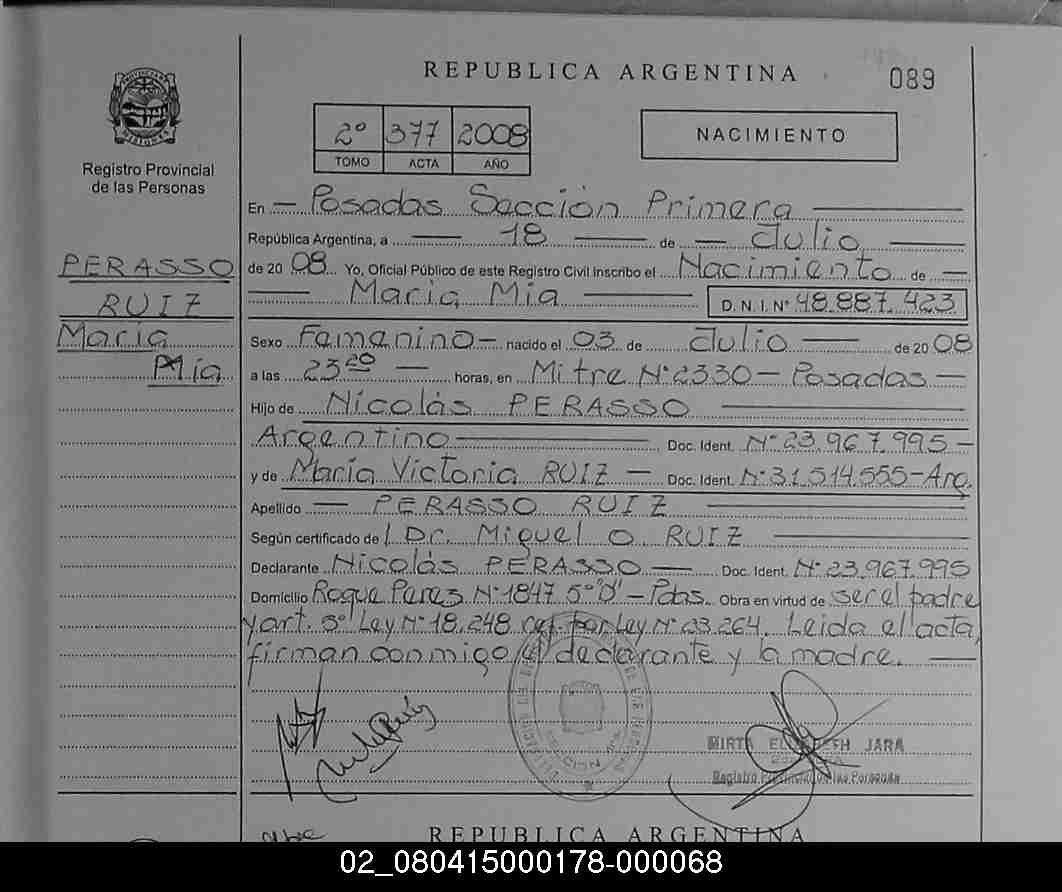 REPUBLICA ARGENTINA
089
2º 377 2008
TOMO ACTA AÑO
NACIMIENTO
Registro Provincial
de las Personas
PERASSO
RUIZ
María
Mía
En Posadas Sección Primera
República Argentina, a 18 de Julio
de 2008 Yo, Oficial Público de este Registro Civil inscribo el Nacimiento de
María Mía D.N.I.Nº 48.887.423
Sexo Femenino nacido el 03 de Julio de 2008
a las 23 20 horas, en Mitre Nº 2330 - Posadas
Hijo de Nicolás PERASSO
Argentino Doc. Ident. Nº 23.967.995
y de María Victoria RUIZ Doc. Ident. Nº 31.514.555 - Arg.
Apellido PERASSO RUIZ
Según certificado de Dr. Miguel O. RUIZ
Declarante Nicolás PERASSO Doc. Ident. Nº 23.967.995
Domicilio Roque Perez Nº 1847 5º "D" - Pdas. Obra en virtud de ser el padre
y art. 5º Ley Nº 18.248 ref. por Ley Nº 23.264. Leida el acta,
firman conmigo el declarante y la madre.
MIRTA ELIZABETH JARA
Registro Provincial de las Personas
REPUBLICA ARGENTINA
02_080415000178-000068